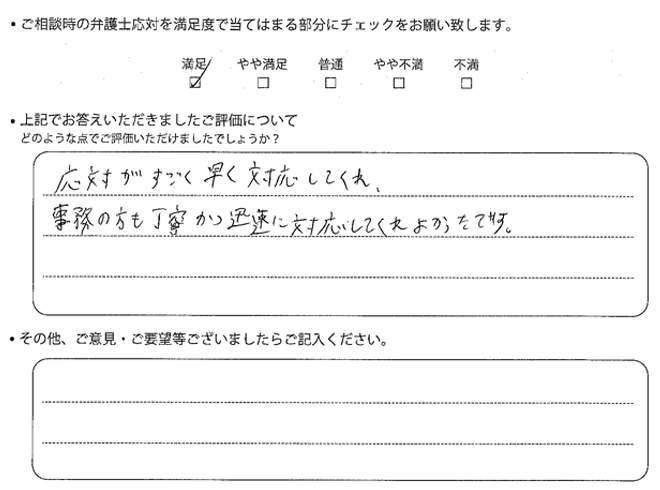 • ご相談時の弁護士応対を満足度で当てはまる部分にチェックをお願い致します。
満足 やや満足 普通 やや不満 不満
☑ □ □ □ □
• 上記でお答えいただきましたご評価について
どのような点でご評価いただけましたでしょうか？
応対がすごく早く対応してくれ、
事務の方も丁寧かつ迅速に対応してくれよかったです。
• その他、ご意見・ご要望等ございましたらご記入ください。